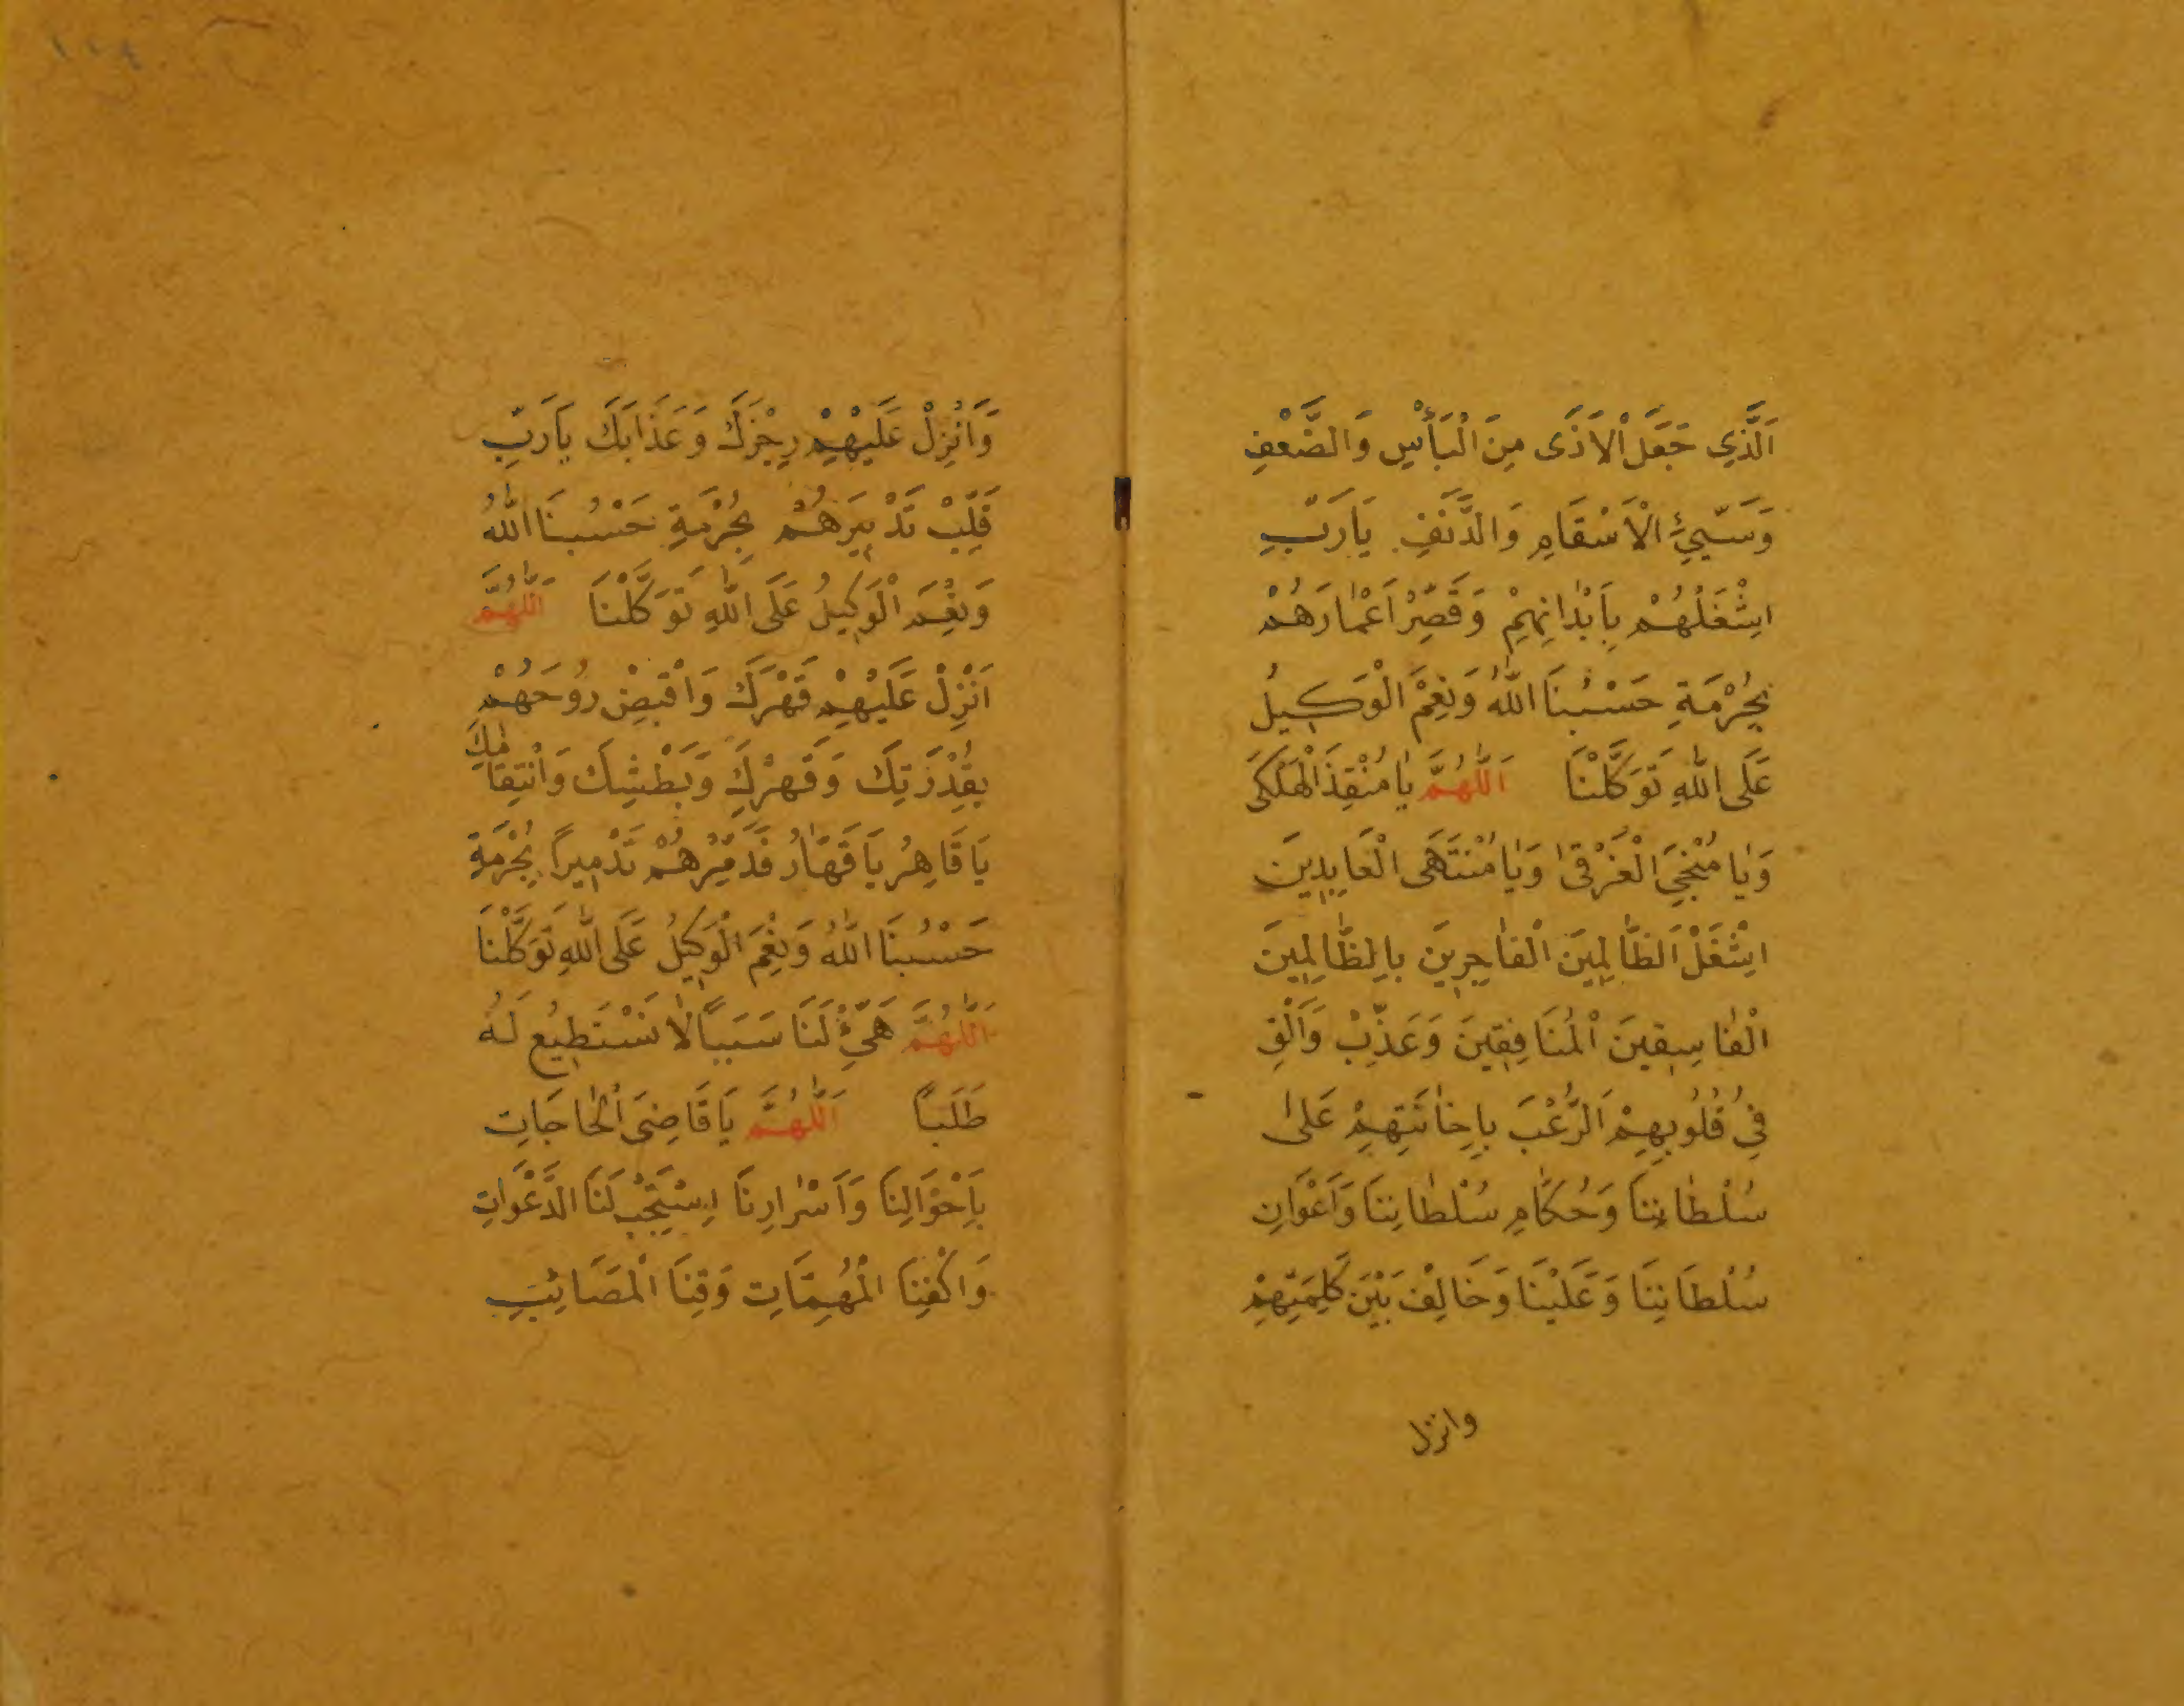 اَلَّذِي جَعَلَ الْاَذَى مِنَ الْبَأْسِ وَالضَّعْفِ
وَسَيِّئِ الْاَسْقَامِ وَالدَّنَفِ يَارَبِّ
اشْغَلْهُمْ بِاَبْدَانِهِمْ وَقَصِّرْ اَعْمَارَهُمْ
بِحُرْمَةِ حَسْبُنَا اللّٰهُ وَنِعْمَ الْوَكِيلُ
عَلَى اللّٰهِ تَوَكَّلْنَا اَللّٰهُمَّ يَا مُنْقِذَ الْهَلْكَى
وَيَا مُنْجِيَ الْغَرْقٰى وَيَا مُنْتَهَى الْعَابِدِينَ
اشْغَلْ اَلظَّالِمِينَ الْفَاجِرِينَ بِالظَّالِمِينَ
الْفَاسِقِينَ الْمُنَافِقِينَ وَعَذِّبْ وَاَلْقِ
فِي قُلُوبِهِمْ اَلرُّعْبَ بِاِخَانَتِهِمْ عَلٰى
سُلْطَانِنَا وَحُكَّامِ سُلْطَانِنَا وَاَعْوَانِ
سُلْطَانِنَا وَعَلَيْنَا وَخَالِفْ بَيْنَ كَلِمَتِهِمْ
وانزل
١١٤
وَاَنْزِلْ عَلَيْهِمْ رِجْزَكَ وَعَذَابَكَ يَارَبِّ
قَلِّبْ تَدْبِيرَهُمْ بِحُرْمَةِ حَسْبُنَا اللّٰهُ
وَنِعْمَ الْوَكِيلُ عَلَى اللّٰهِ تَوَكَّلْنَا اَللّٰهُمَّ
اَنْزِلْ عَلَيْهِمْ قَهْرَكَ وَاقْبِضْ رُوحَهُمْ
بِقُدْرَتِكَ وَقَهْرِكَ وَبَطْشِكَ وَانْتِقَامِكَ
يَا قَاهِرُ يَا قَهَّارُ فَدَمِّرْهُمْ تَدْمِيرًا بِحُرْمَةِ
حَسْبُنَا اللّٰهُ وَنِعْمَ الْوَكِيلُ عَلَى اللّٰهِ تَوَكَّلْنَا
اَللّٰهُمَّ هَيِّئْ لَنَا سَبَبًا لَا نَسْتَطِيعُ لَهُ
طَلَبًا اَللّٰهُمَّ يَا قَاضِىَ الْحَاجَاتِ
بِاَحْوَالِنَا وَاَسْرَارِنَا اِسْتَجِبْ لَنَا الدَّعْوَاتِ
وَاكْفِنَا الْمُهِمَّاتِ وَقِنَا الْمَصَائِبِ